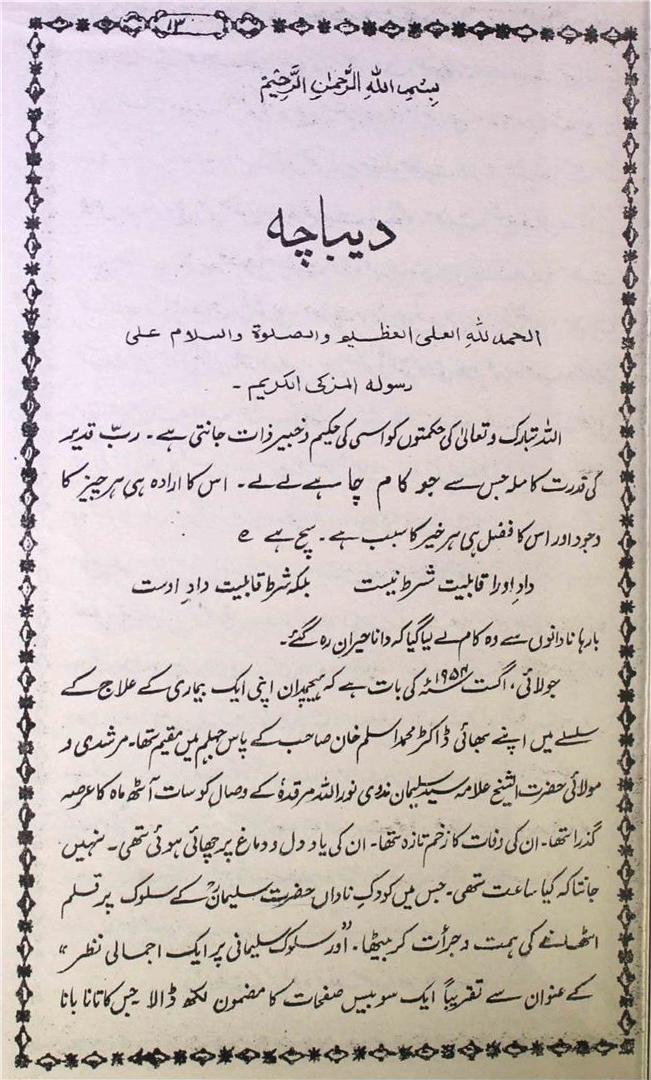 ۱۳
بِسْمِ اللهِ الرَّحْمٰنِ الرَّحِيْمِ
دیباچہ
الحمد للهِ العلی العظیم والصلوة والسلام علی
رسوله المزکی الکریم ۔
اللہ تبارک و تعالیٰ کی حکمتوں کو اسی کی حکیم و خبیر ذات جانتی ہے۔ ربّ قدیر
کی قدرت کاملہ جس سے جو کام چاہے لے لے۔ اس کا ارادہ ہی ہر چیز کا
وجود اور اس کا فضل ہی ہر خیر کا سبب ہے۔ سچ ہے ؎
دادِ او را قابلیت شرط نیست بلکہ شرط قابلیت دادِ اوست
بارہا نادانوں سے وہ کام لے لیا گیا کہ دانا حیران رہ گئے۔
جولائی، اگست ۱۹۵۴ء کی بات ہے کہ ہیچمدان اپنی ایک بیماری کے علاج کے
سلسلے میں اپنے بھائی ڈاکٹر محمد اسلم خان صاحب کے پاس جہلم میں مقیم تھا۔ مرشدی و
مولائی حضرت الشیخ علامہ سید سلیمان ندوی نور اللہ مرقدہٗ کے وصال کو سات آٹھ ماہ کا عرصہ
گذرا تھا۔ ان کی وفات کا زخم تازہ تھا۔ ان کی یاد دل و دماغ پر چھائی ہوئی تھی۔ نہیں
جانتا کہ کیا ساعت تھی۔ جس میں کودکِ ناداں حضرت سلیمانؒ کے سلوک پر قلم
اٹھانے کی ہمت و جرأت کر بیٹھا۔ اور "سلوک سلیمانی پر ایک اجمالی نظر"
کے عنوان سے تقریباً ایک سو بیس صفحات کا مضمون لکھ ڈالا جس کا تانا بانا